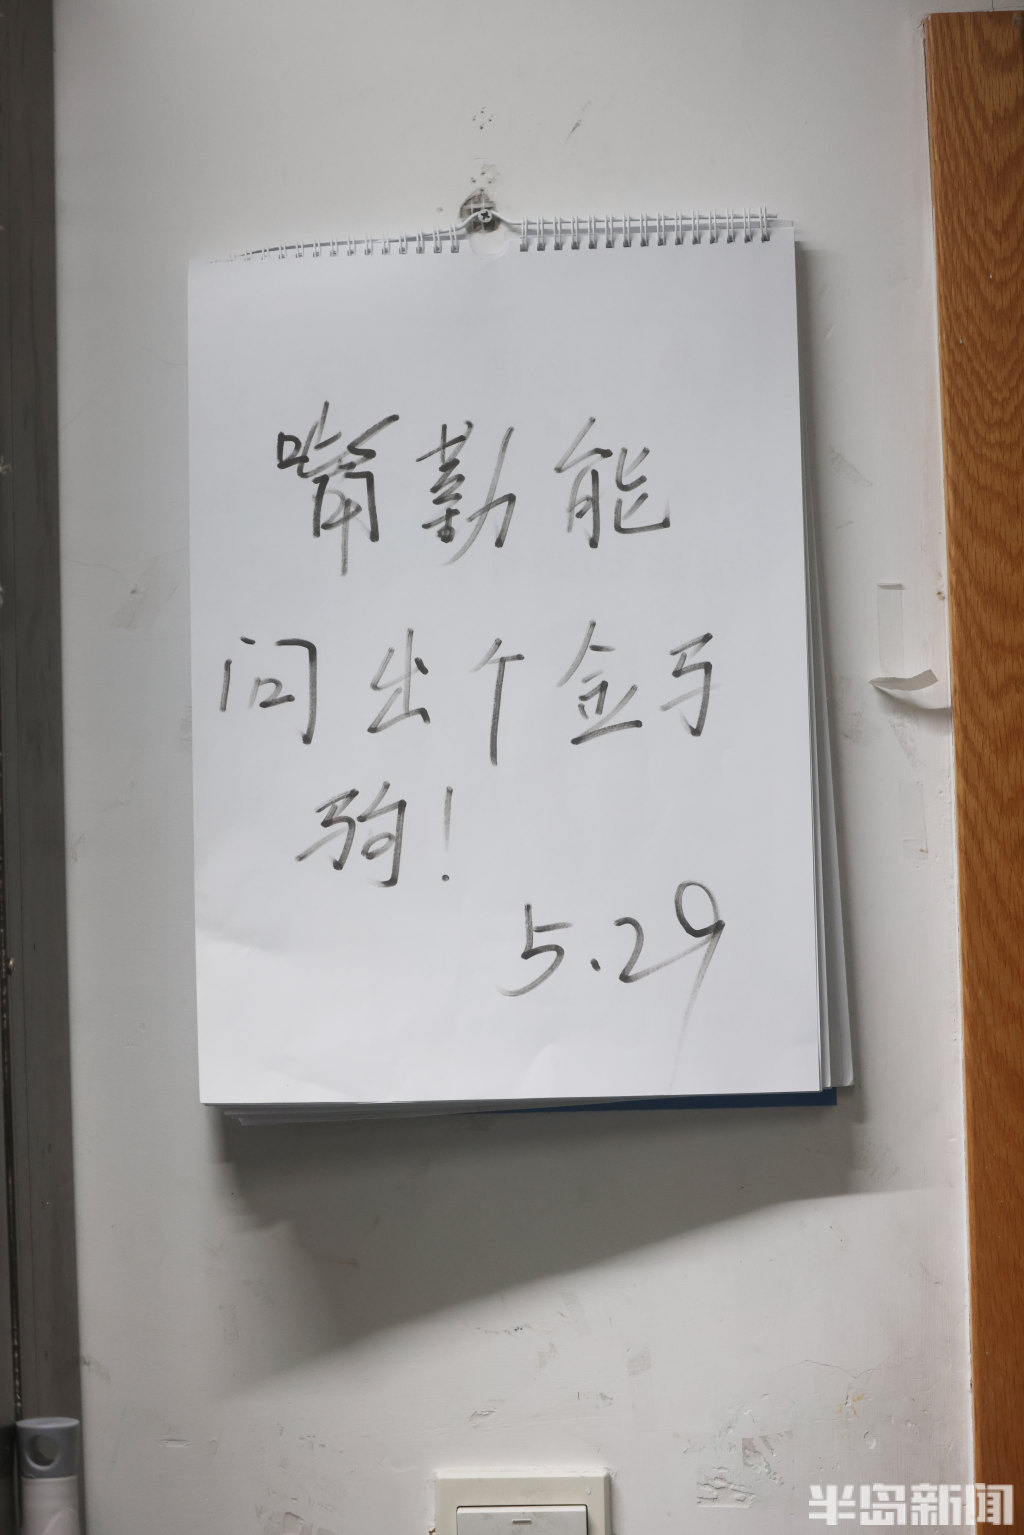 嘴勤能
问出个金马
驹!
5.29
半岛新闻